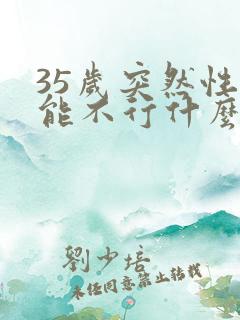 35歲突然性
能不行什麼
劉少培
未經同意禁止轉載